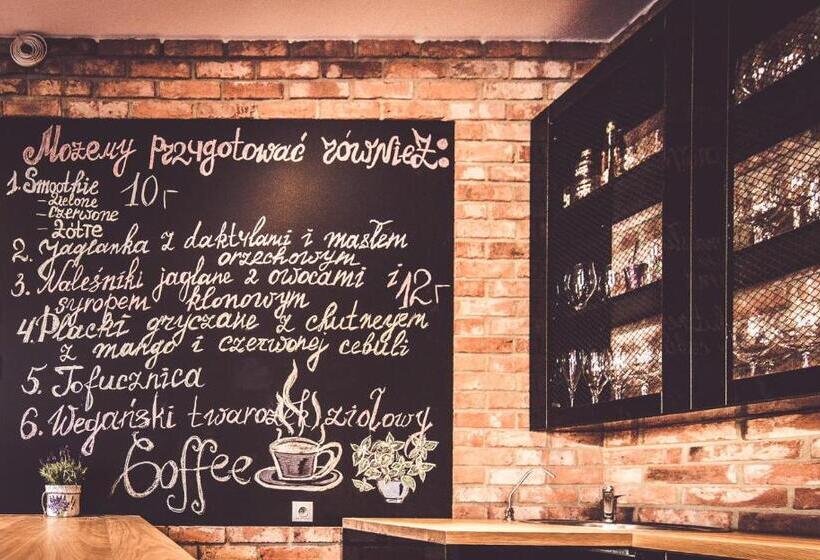 Możemy przygotować również:
1. Smoothie 10,-
- Zielone
- Czerwone
- Żółte
2. Jaglanka z daktylami i masłem
orzechowym
3. Naleśniki jaglane z owocami i 12,-
syropem klonowym
4. Placki gryczane z chutneyem
z mango i czerwonej cebuli
5. Tofucznica
6. Wegański twarożek ziołowy
Coffee